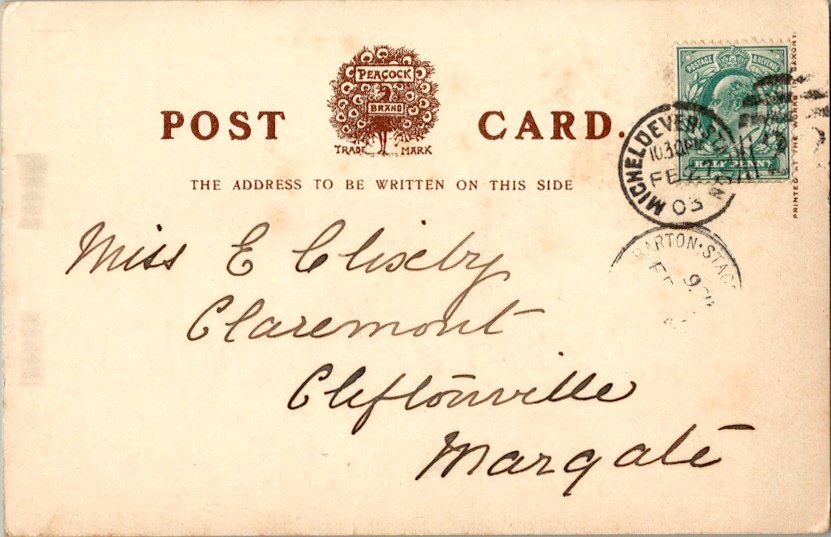 PEACOCK
BRAND
TRADE MARK
POST CARD.
THE ADDRESS TO BE WRITTEN ON THIS SIDE
POSTAGE & REVENUE
HALF PENNY
MICHELDEVER STATION
10.30PM
FE
03
BARTON·STAC
PRINTED AT THE WORKS IN SAXONY.
Miss E Clixby
Claremont
Cliftonville
Margate